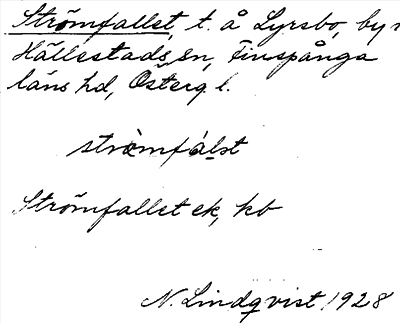 Strömfallet, t. å Lyrsbo, by i
Hällestads sn, Finspånga
läns hd, Österg l.
strömfálst
Strömfallet ek, kb
N. Lindqvist 1928